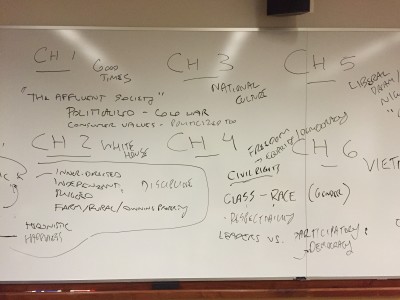 CH 1
GOOD
TIMES
"THE AFFLUENT SOCIETY"
POLITICIZED - COLD WAR
CONSUMER VALUES - POLITICIZED TOO
CH 2
WHITE
INNER-DIRECTED
INDEPENDENT
RUGGED
DISCIPLINE
FARM/RURAL/OWNING PROPERTY
HEDONISTIC
HAPPINESS
CH 3
NATIONAL
CULTURE
CH 4
FREEDOM
EQUALITY/DEMOCRACY
CIVIL RIGHTS
CLASS - RACE (GENDER)
- RESPECTABILITY
LEADERS VS.
PARTICIPATORY
DEMOCRACY
CH 5
LIBERAL
CH 6
VIET